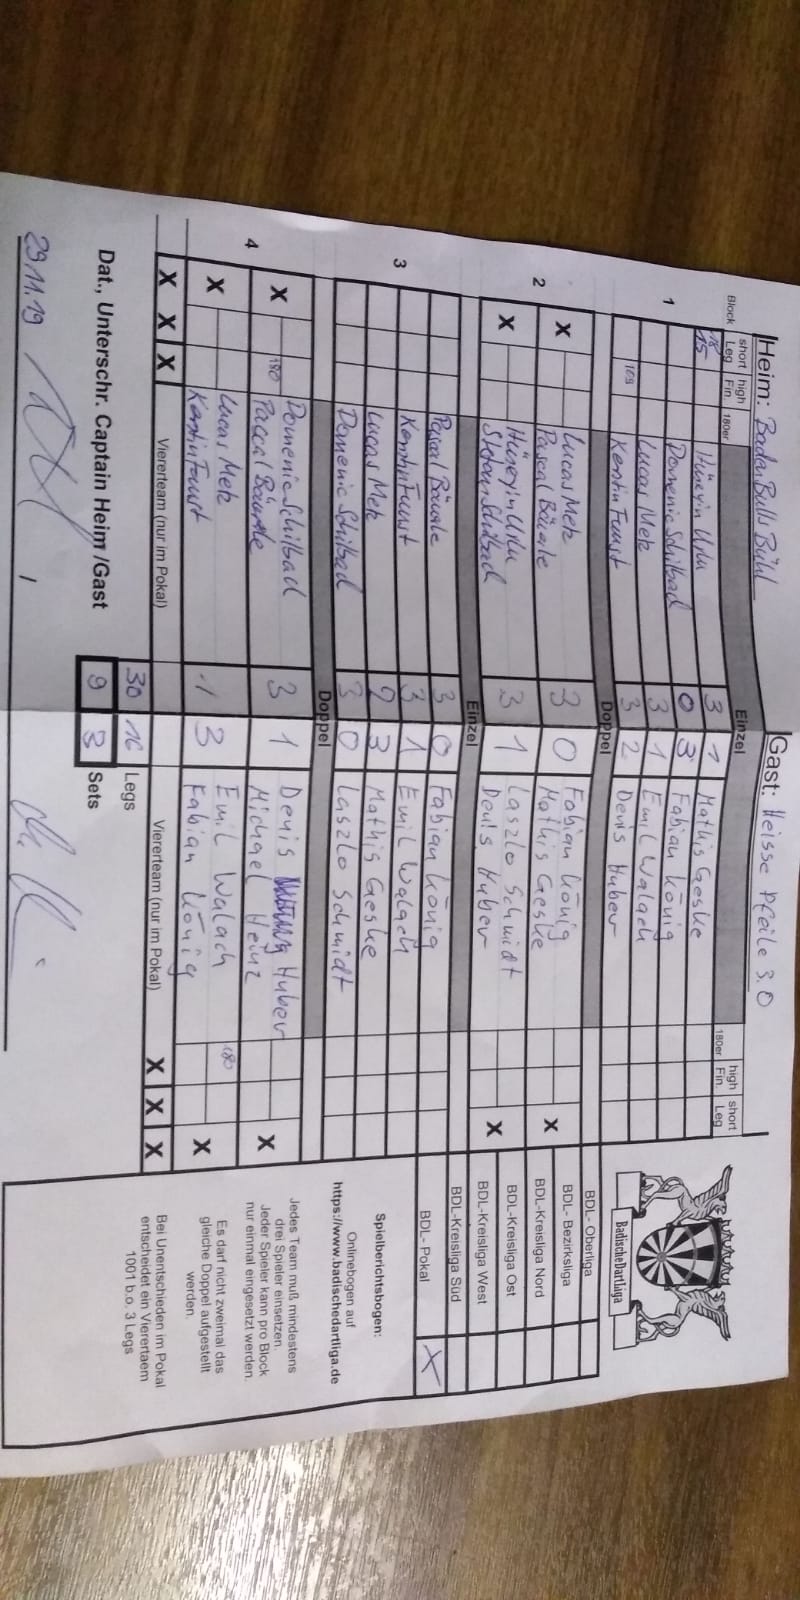 Heim: BadenBulls Bühl Gast: Heisse Pfeile 3.0
Block short Leg high Fin. 180er Einzel 180er high Fin. short Leg
1
18 15 Hüseyin Urlu 3 1 Mathis Geske
Domenic Schilbad 0 3 Fabian König
Lucas Metz 3 1 Emil Walach
109 Kerstin Faust 3 2 Denis Huber
Doppel
2
X Lucas Metz 3 0 Fabian König X
Pascal Bäuerle Mathis Geske
X Hüseyin Urlu 3 1 Laszlo Schmidt X
Stefan Schilbad Denis Huber
Einzel
3
Pascal Bäuerle 3 0 Fabian König
Kerstin Faust 3 1 Emil Walach
Lucas Metz 2 3 Mathis Geske
Domenic Schilbad 3 0 Laszlo Schmidt
Doppel
4
X Domenic Schilbad 3 1 Denis Huber X
180 Pascal Bäuerle Michael Heinz
X Lucas Metz 1 3 Emil Walach 180 X
Kerstin Faust Fabian König
X X X Viererteam (nur im Pokal) Viererteam (nur im Pokal) X X X
30 16 Legs
9 3 Sets
Dat., Unterschr. Captain Heim /Gast
29.11.19
BadischeDartliga
BDL- Oberliga
BDL- Bezirksliga
BDL-Kreisliga Nord
BDL-Kreisliga Ost
BDL-Kreisliga West
BDL-Kreisliga Süd
BDL- Pokal X
Spielberichtsbogen:
Onlinebogen auf
https://www.badischedartliga.de
Jedes Team muß mindestens
drei Spieler einsetzen.
Jeder Spieler kann pro Block
nur einmal eingesetzt werden.
Es darf nicht zweimal das
gleiche Doppel aufgestellt
werden.
Bei Unentschieden im Pokal
entscheidet ein Vierertaem
1001 b.o. 3 Legs